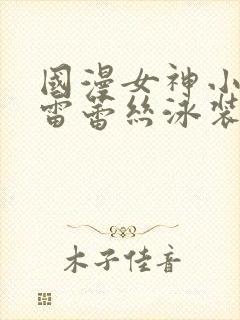 國漫女神小
雷蕾絲泳裝
木子佳音